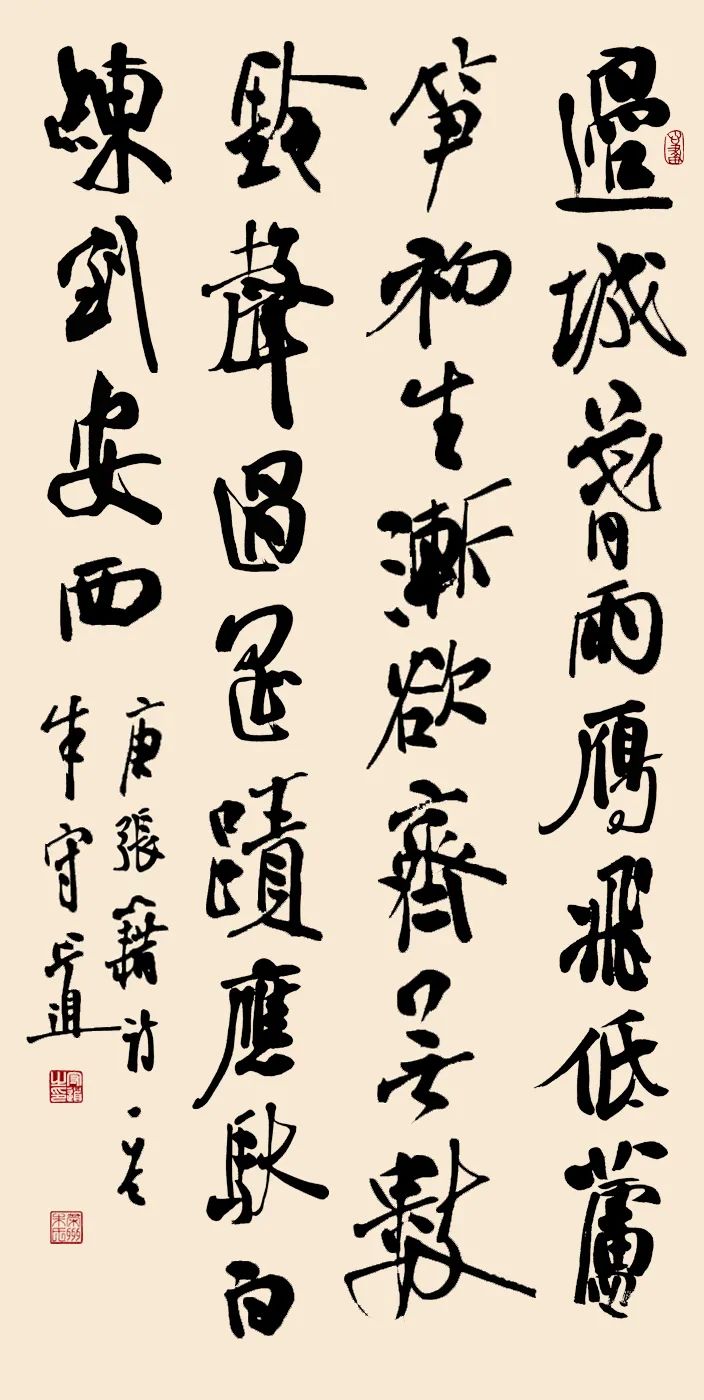 邊城暮雨鴈飛低蘆
筍初生漸欲齊無數
鈴聲過磧應馱白
練到安西
唐張籍詩一首
朱守道